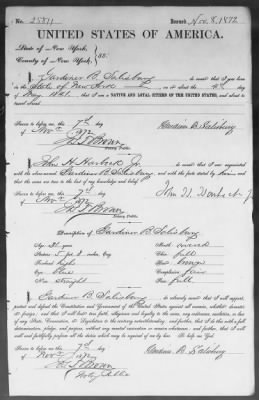 No. 25811 Issued Nov. 8, 1872
UNITED STATES OF AMERICA.
State of New York,
County of New York, } ss:
I Gardiner B. Salisbury do swear that I was born
in the State of New York on or about the 9th day of
May 1851 that I am a NATIVE AND LOYAL CITIZEN OF THE UNITED STATES, and about to
travel abroad.
Sworn to before me, this 7th day
of Novr 1872
Gardiner B. Salisbury
Notary Public.
I John H. Harbeck Jr. do swear that I am acquainted
with the above-named Gardiner B. Salisbury and with the facts above stated by him
Sworn to before me, this 7th day
of Novr 1872
Notary Public.
Description of Gardiner B. Salisbury
Age: 21 years Mouth: round
Stature: 5 feet 8 inches, Eng. Chin: full
Forehead: high Hair: brown
Eyes: blue Complexion: fair
Nose: straight Face: full
I Gardiner B. Salisbury do solemnly swear that I will support,
protect and defend the Constitution and Government of the United States against all enemies, whether domestic
or foreign; and that I will bear true faith, allegiance and loyalty to the same, any ordinance, resolution, or law
of any State, Convention, or Legislature to the contrary notwithstanding; and further, that I do this with a full
determination, pledge, and purpose, without any mental reservation or evasion whatsoever; and further, that I will
well and faithfully perform all the duties which may be required of me by law. So help me God.
Sworn to before me, this 7th day
of Novr 1872
Gardiner B. Salisbury
Notary Public